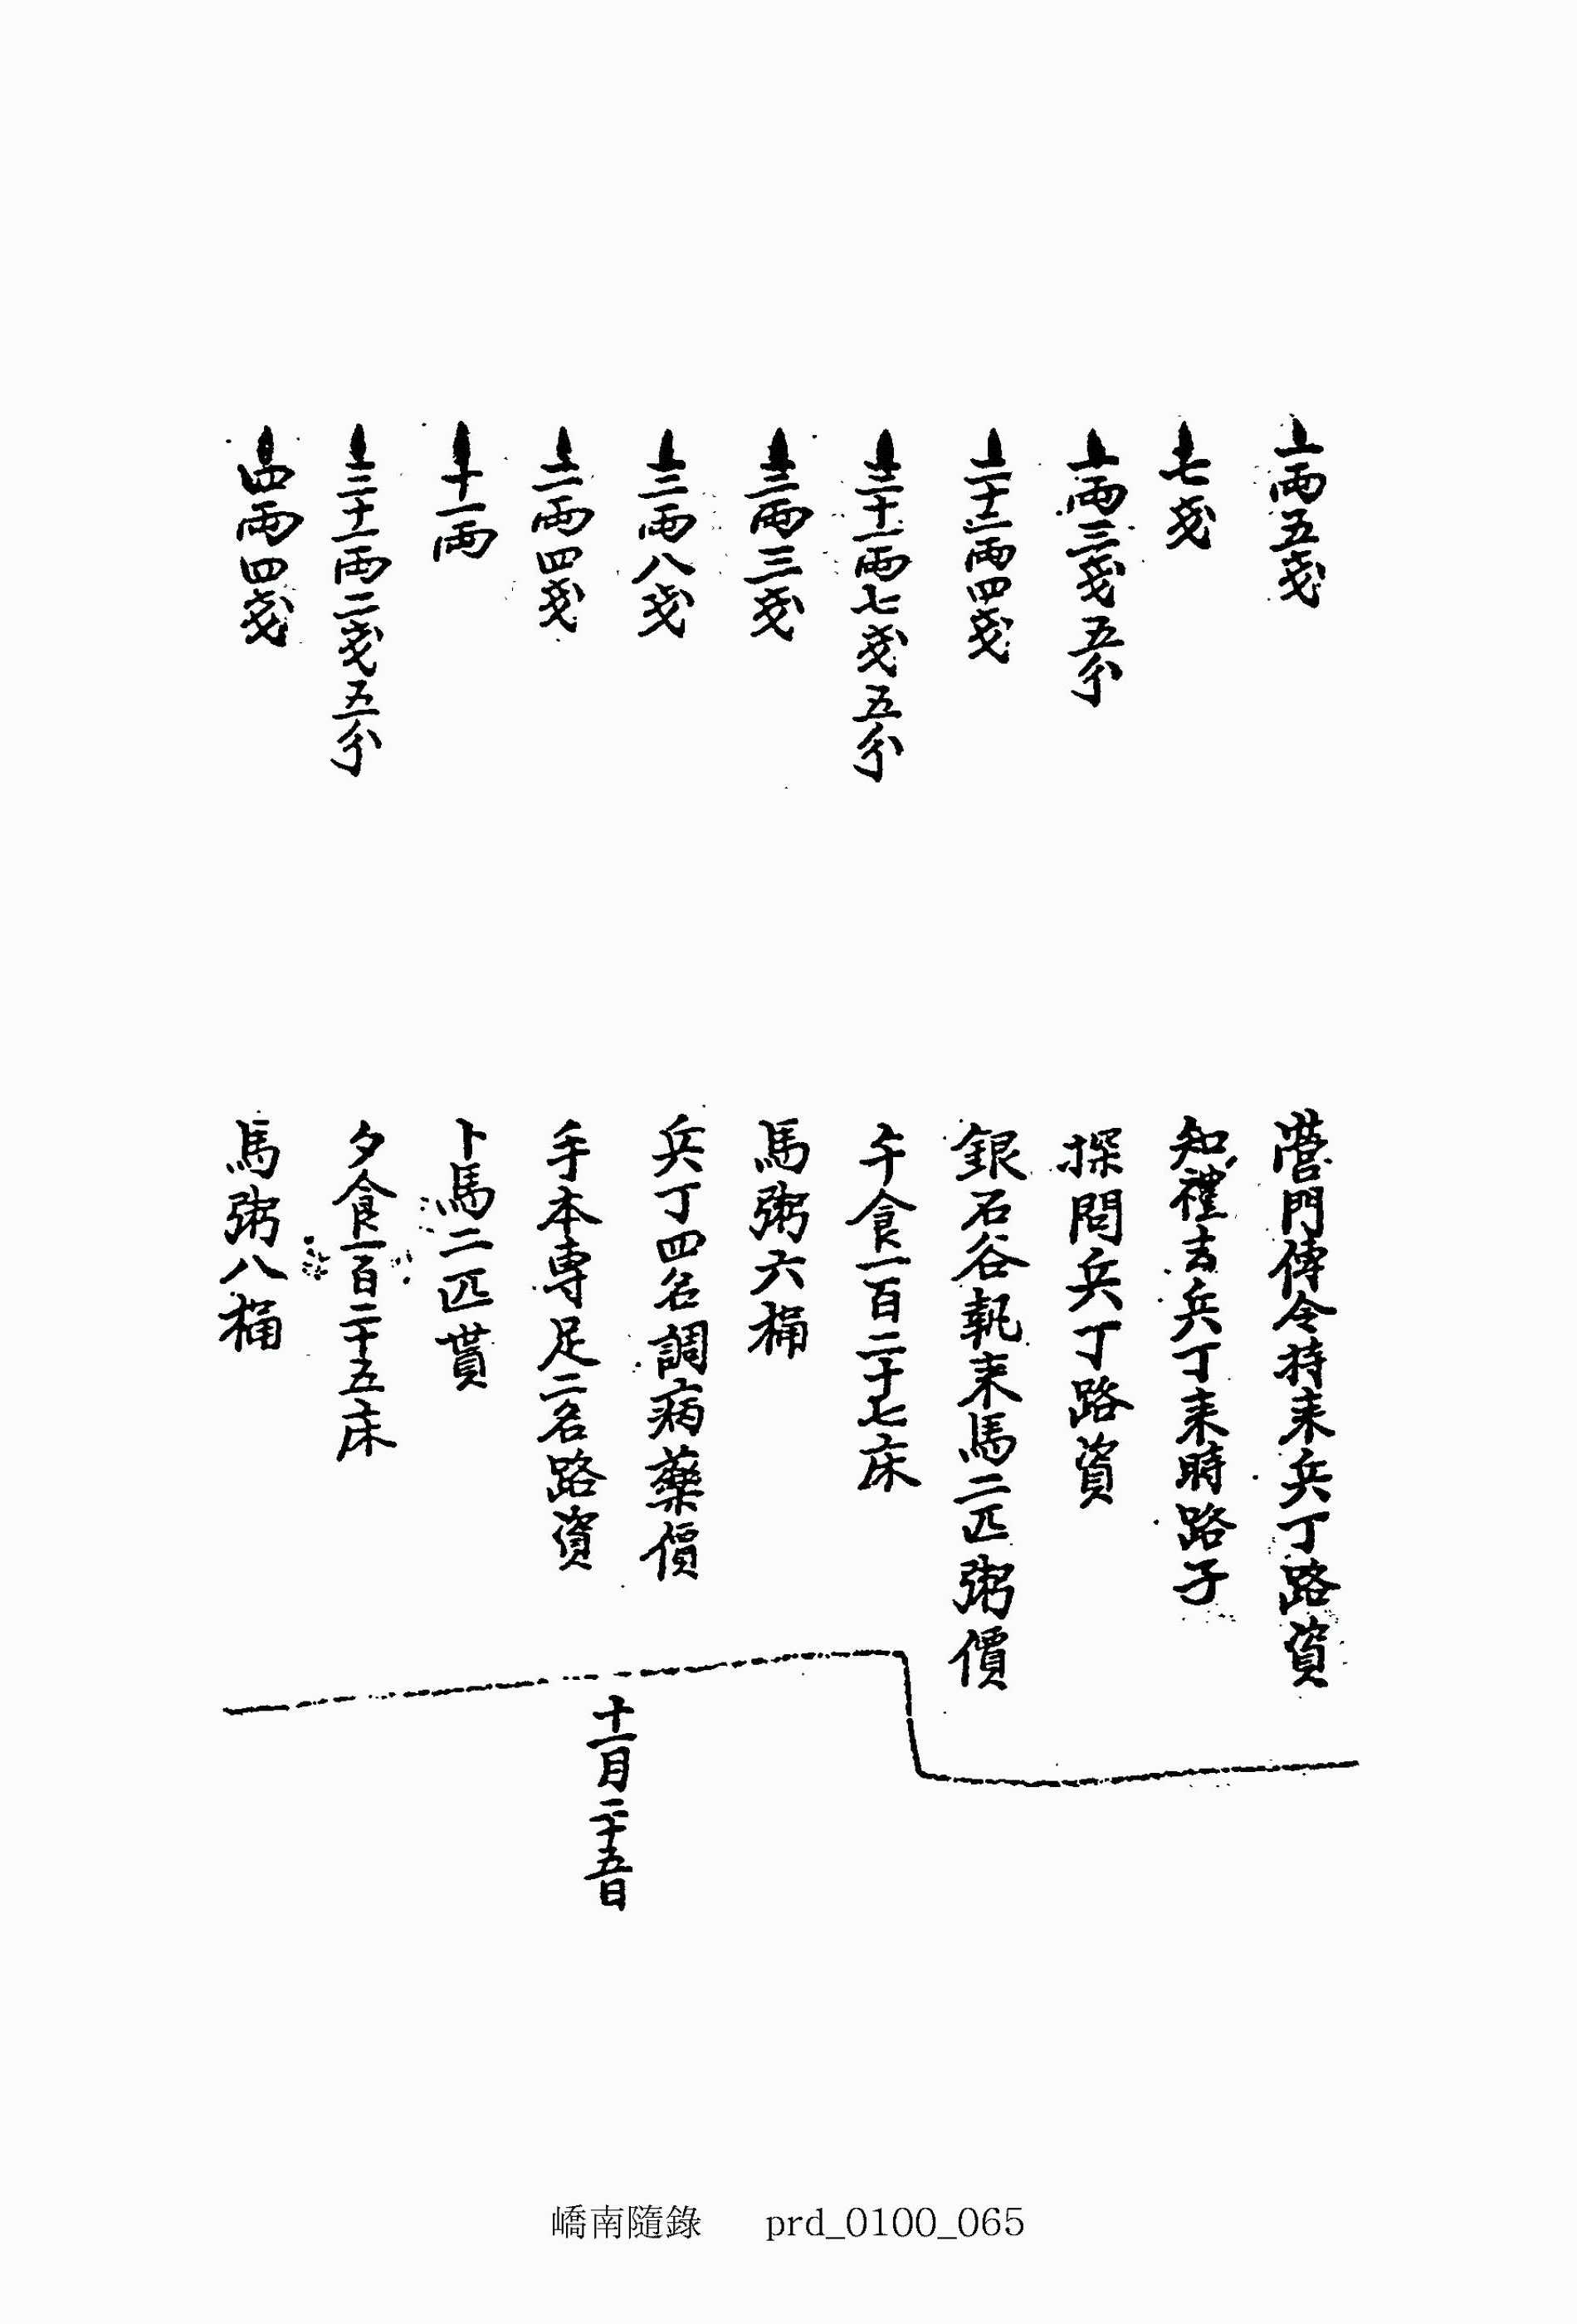 一兩五戔 營門傳令持来兵丁路資
七戔 知禮去兵丁来時路子
一兩三戔五分 探問兵丁路資
二十二兩四戔 銀石谷執来馬二匹粥價
三十一兩七戔五分 午食一百二十七床
三兩三戔 馬粥六桶
三兩八戔 兵丁四名調病藥價
二兩四戔 手本專足二名路資
十一兩 卜馬二匹貰
三十一兩二戔五分 夕食一百二十五床
四兩四戔 馬粥八桶
十一月二十五日
嶠南隨錄 prd_0100_065